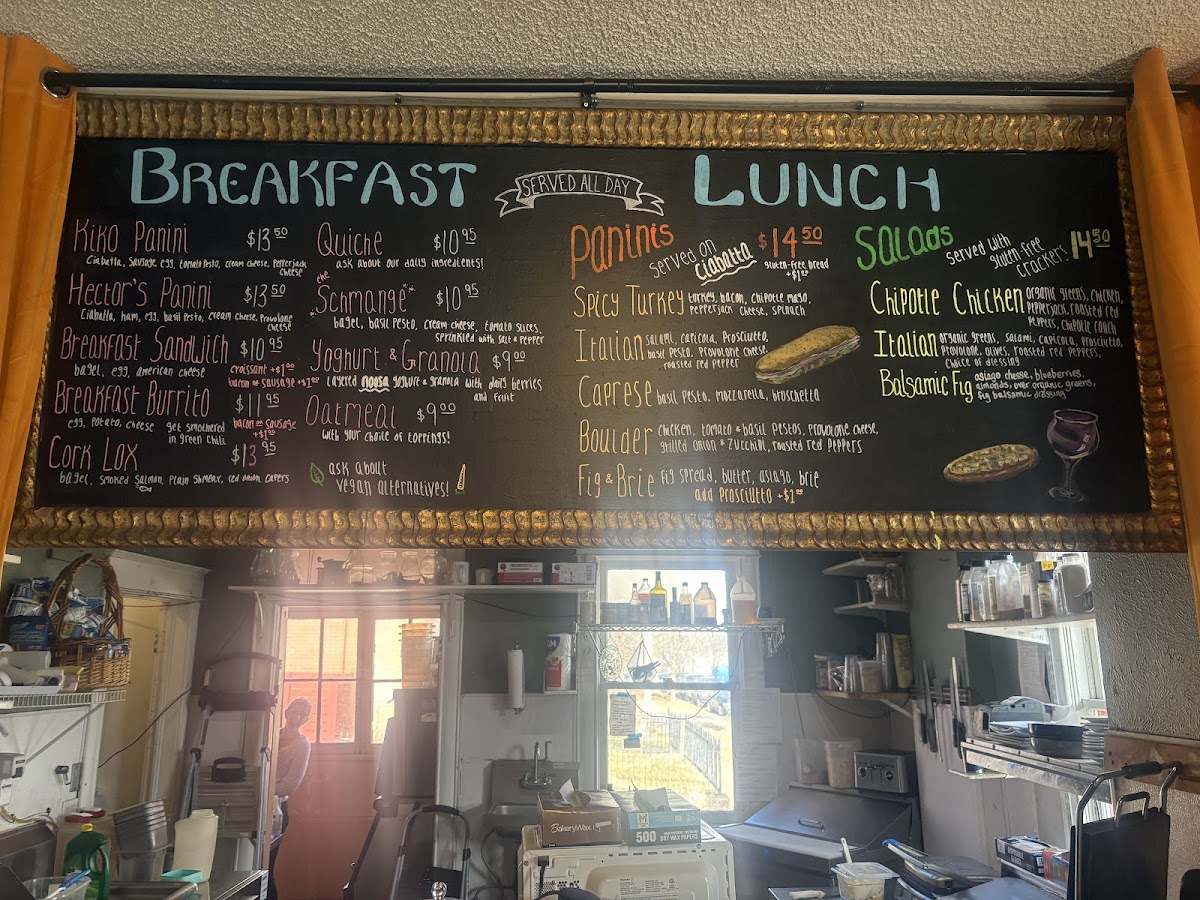 BREAKFAST
SERVED ALL DAY
LUNCH
Kiko Panini $13.50
Ciabatta, sausage, egg, tomato pesto, cream cheese, pepperjack
cheese
Hector's Panini $13.50
Ciabatta, ham, egg, basil pesto, cream cheese, provolone
cheese
Breakfast Sandwich $10.95
bagel, egg, american cheese
croissant +$1.00
bacon or sausage +$1.00
Breakfast Burrito $11.95
egg, potato, cheese get smothered
in green chili
bacon or sausage
+$1.00
Cork Lox $13.95
bagel, smoked salmon, plain shmear, red onion, capers
Quiche $10.95
ask about our daily ingredients!
the
Schmange $10.95
bagel, basil pesto, cream cheese, tomato slices,
sprinkled with salt & pepper
Yoghurt & Granola $9.00
layered noosa yoghurt & granola with daily berries
and fruit
Oatmeal $9.00
with your choice of toppings!
ask about
vegan alternatives!
Paninis served on
ciabatta
$14.50
gluten-free bread
+$1.00
Spicy Turkey turkey, bacon, chipotle mayo,
pepperjack cheese, spinach
Italian salami, capicola, prosciutto,
basil pesto, provolone cheese,
roasted red pepper
Caprese basil pesto, mozzarella, bruschetta
Boulder chicken, tomato & basil pestos, provolone cheese,
grilled onion & zucchini, roasted red peppers
Fig & Brie fig spread, butter, asiago, brie
add prosciutto +$1.00
Salads served with
gluten-free
crackers!
14.50
Chipotle Chicken organic greens, chicken,
pepperjack, roasted red
peppers, chipotle ranch
Italian organic greens, salami, capicola, prosciutto,
provolone, olives, roasted red peppers,
choice of dressing
Balsamic Fig asiago cheese, blueberries,
almonds, over organic greens,
fig balsamic dressing
BakeryWax
500
DRY WAX PAPERS